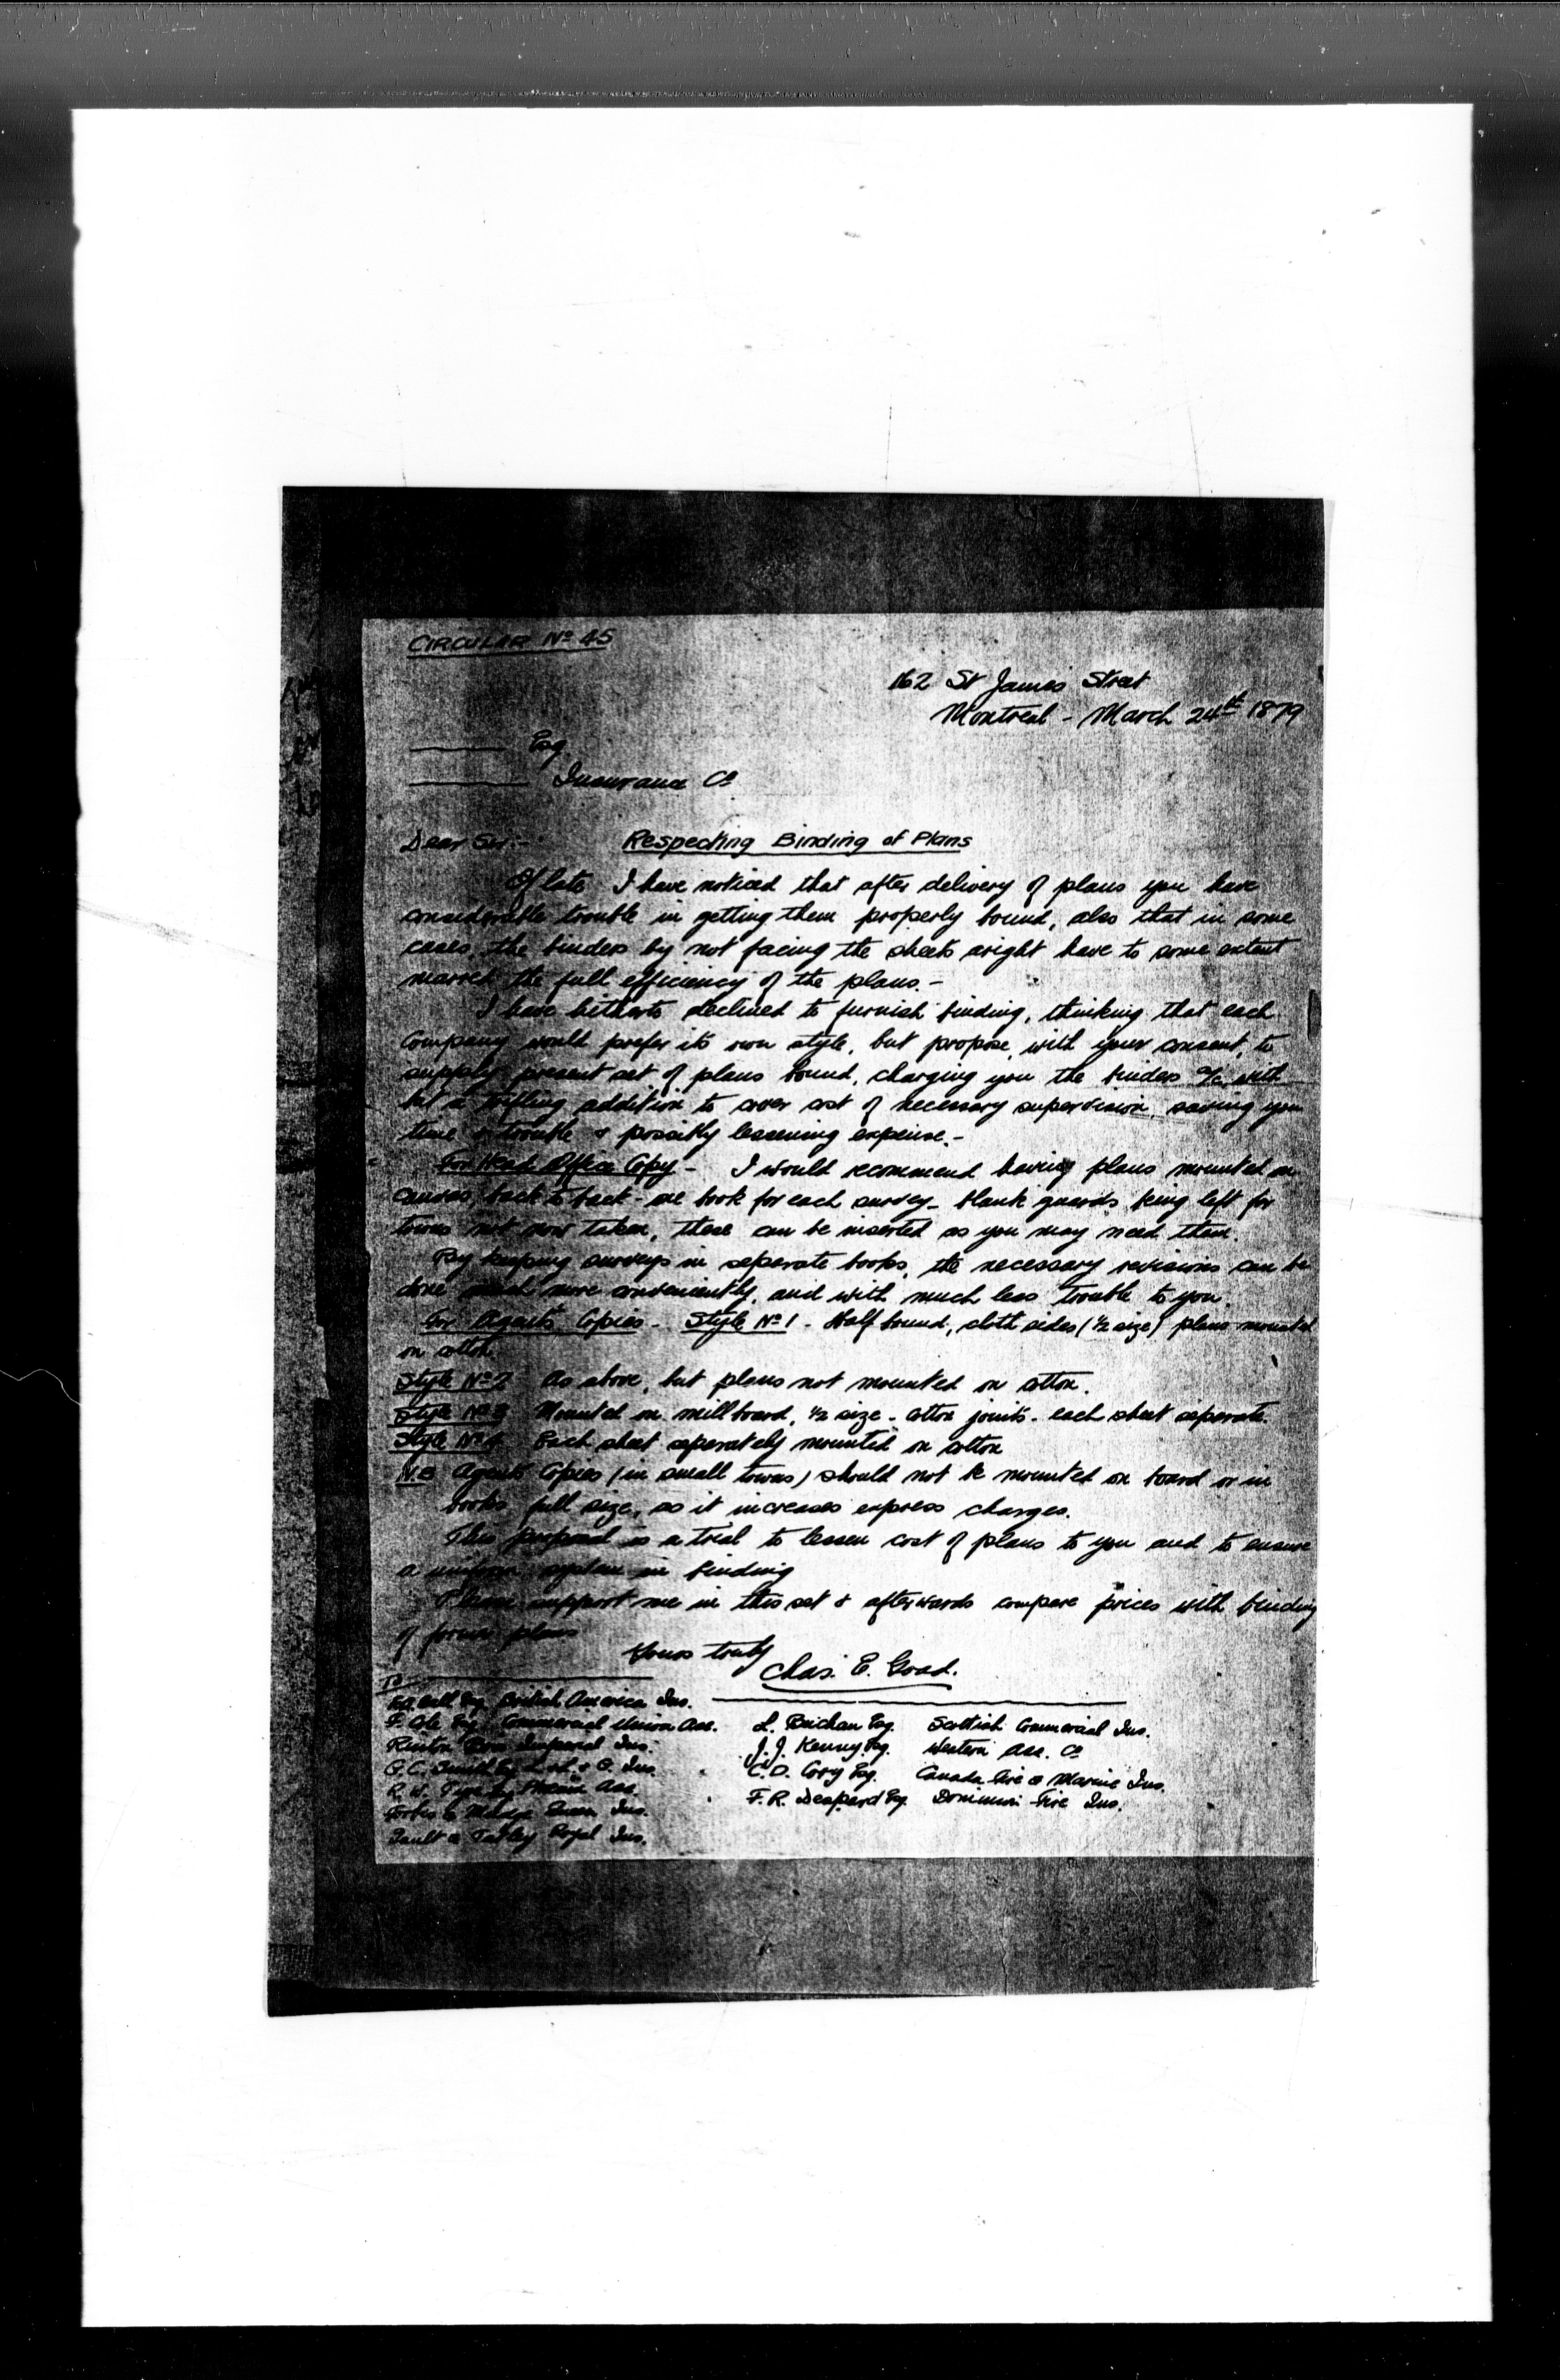 CIRCULAR Nº 45
162 St James Street
Montreal - March 24th 1879
Esq
Insurance Co
Dear Sir:- Respecting Binding of Plans
Of late I have noticed that after delivery of plans you have
considerable trouble in getting them properly bound, also that in some
cases, the binders by not facing the sheets aright have to some extent
marred the full efficiency of the plans.-
I have hitherto declined to furnish binding, thinking that each
Company would prefer its own style, but propose, with your consent, to
supply present set of plans bound, charging you the binders a/c, with
but a trifling addition to cover cost of necessary supervision, saving you
time & trouble & possibly lessening expense.-
For Head Office Copy - I would recommend having plans mounted on
canvas, back to back - one book for each survey - blank guards being left for
towns not now taken, these can be inserted as you may need them.
By keeping surveys in seperate books, the necessary revisions can be
done much more conveniently, and with much less trouble to you.
For Agents Copies - Style Nº 1 - Half bound, cloth sides (1/2 size) plans mounted
on cotton.
Style Nº 2 As above, but plans not mounted on cotton.
Style Nº 3 Mounted on millboard, 1/2 size - cotton joints - each sheet seperate.
Style Nº 4 Each sheet seperately mounted on cotton
N.B Agents Copies (in small towns) should not be mounted on board or in
books full size, as it increases express charges.
This proposal is a trial to lessen cost of plans to you and to ensure
a uniform system in binding
Please support me in this set & afterwards compare prices with binding
of former plans
Yours truly
Chas. E. Goad.
To
Ball Esq. British America Ins.
F. Cole Esq. Commercial Union Ass.
Rintoul Bros Imperial Ins.
G. C. Smith Esq. L. & L. & G. Ins.
R. W. Tyre Esq. Phoenix Ass.
Forbes & Mudge Queen Ins.
Gault & Tatley Royal Ins.
L. Buchan Esq. Scottish Commercial Ins.
J. J. Kenny Esq. Western Ass. Co
C. D. Cory Esq. Canada Fire & Marine Ins.
F. R. Despard Esq. Dominion Fire Ins.